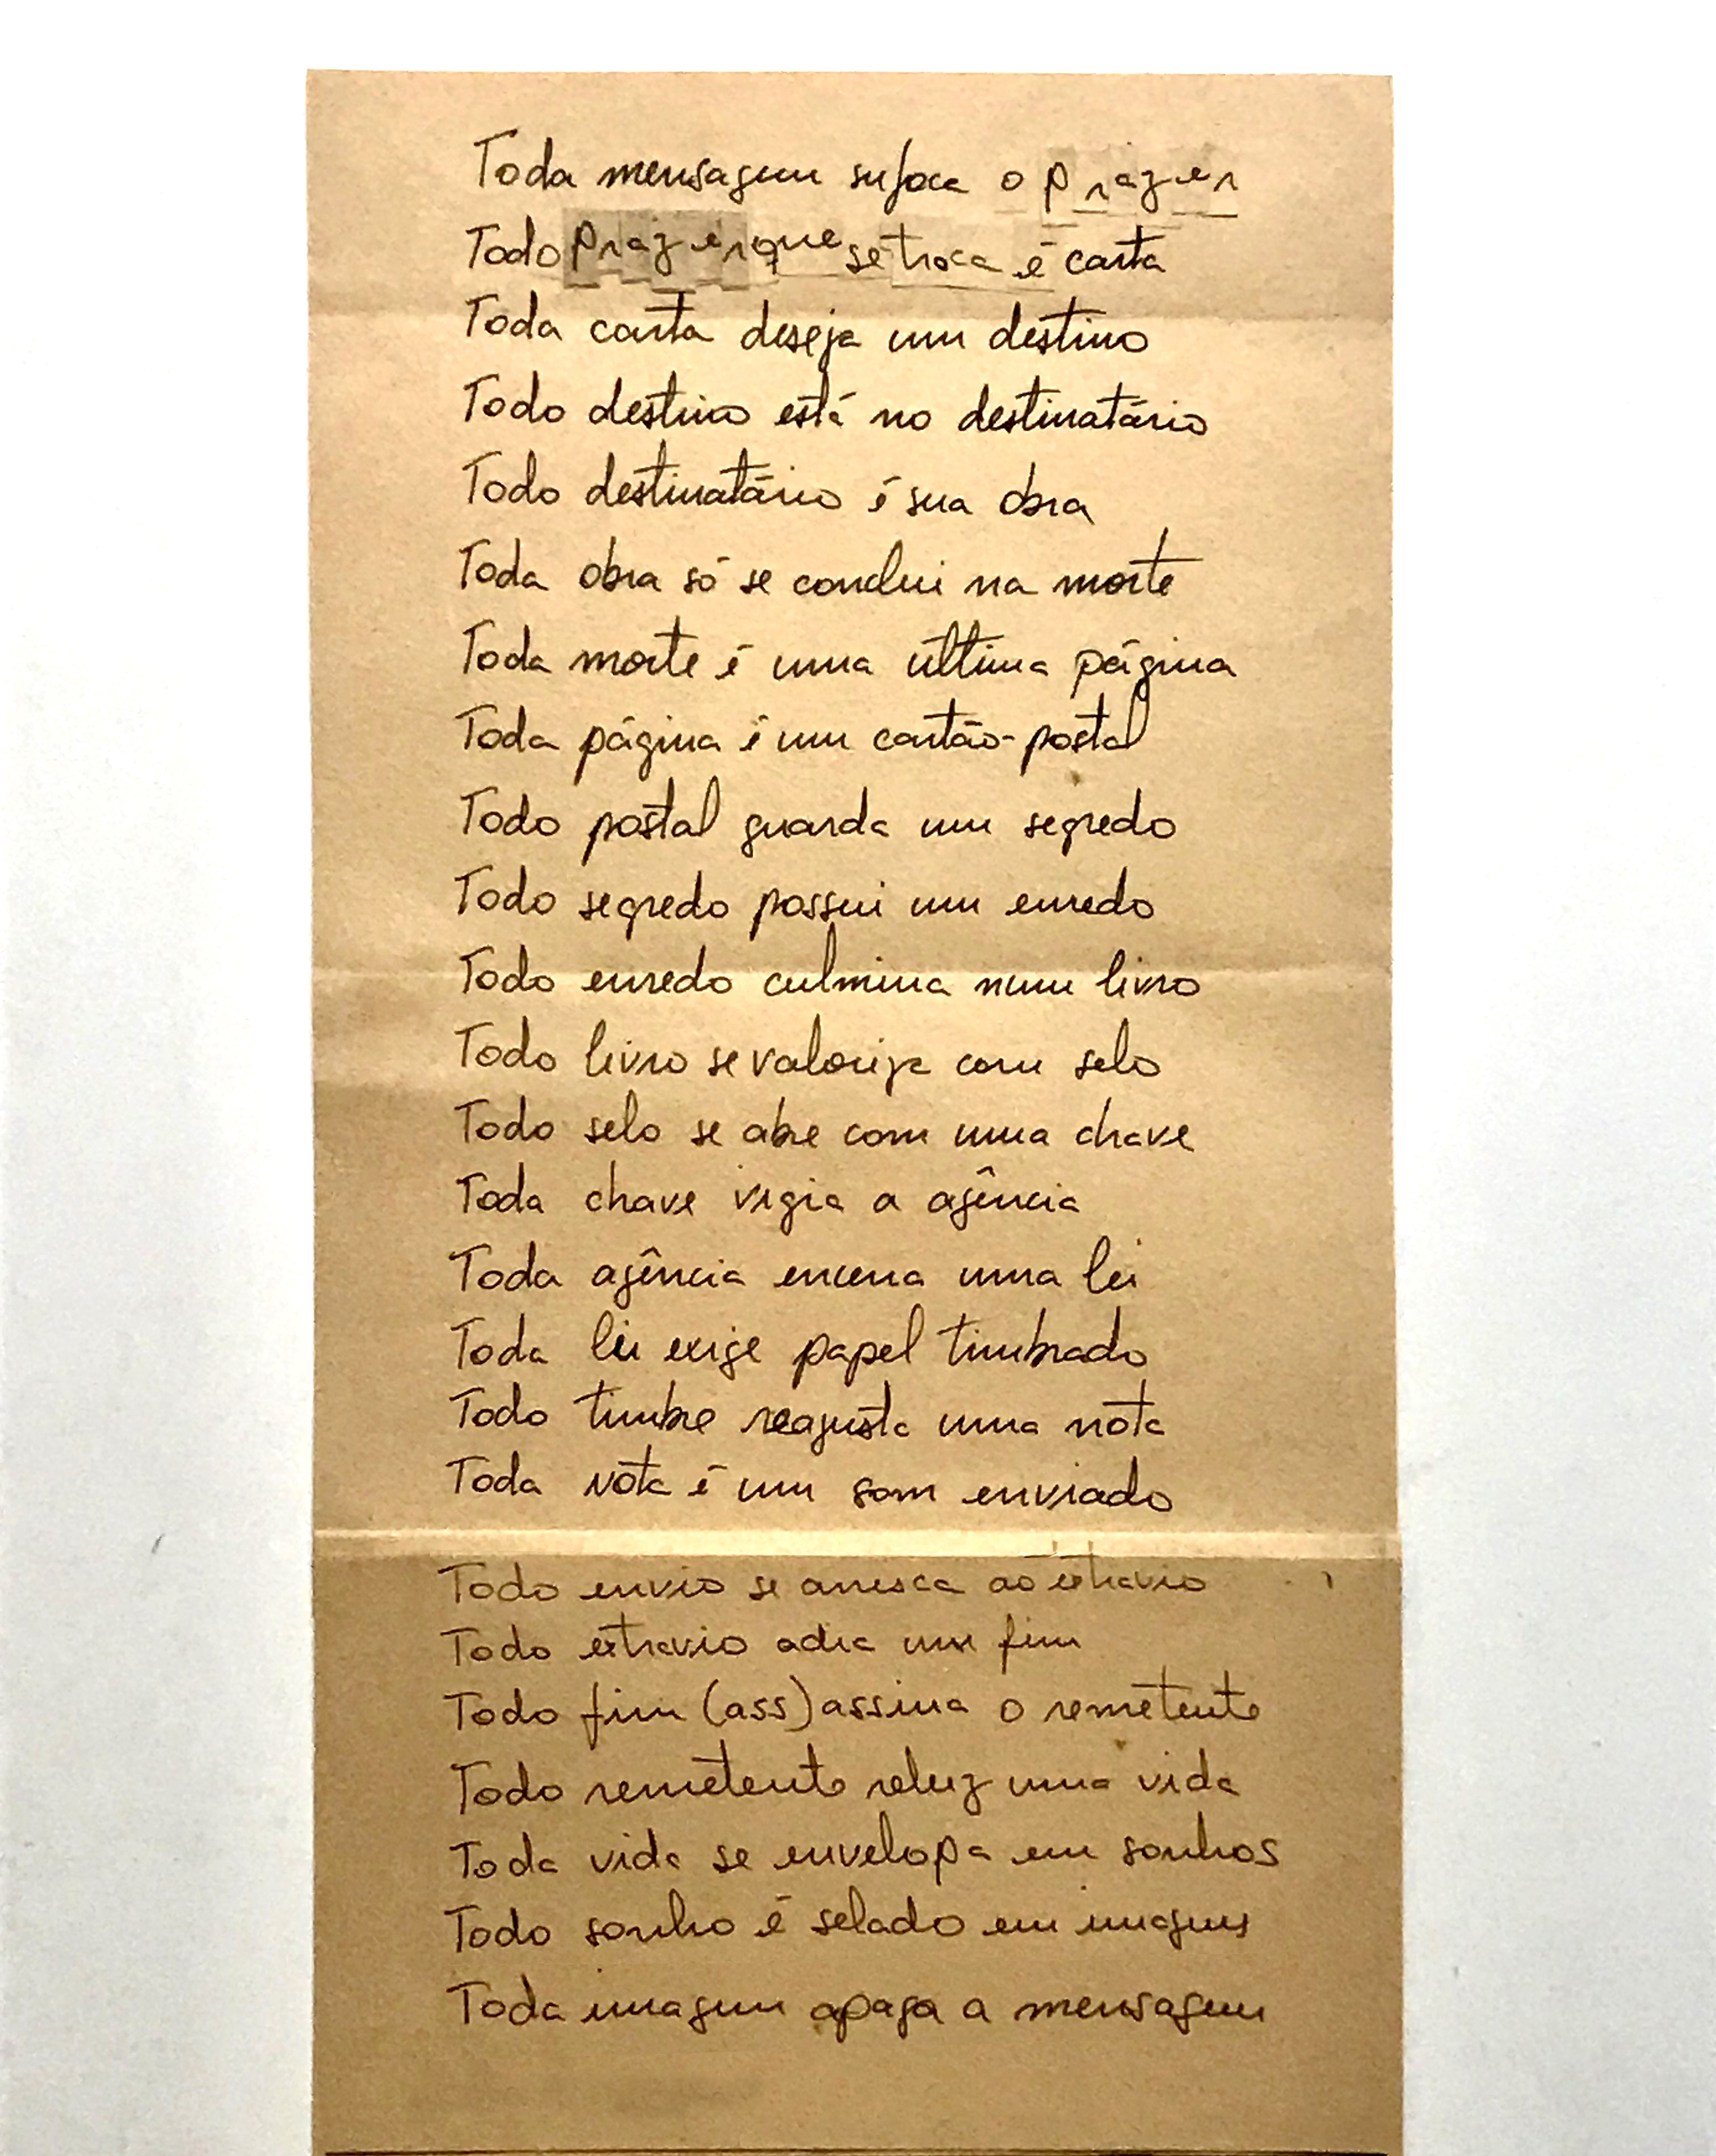 Toda mensagem sufoca o prazer
Todo prazer que se troca é carta
Toda carta deseja um destino
Todo destino está no destinatário
Todo destinatário é sua obra
Toda obra só se conclui na morte
Toda morte é uma última página
Toda página é um cartão-postal
Todo postal guarda um segredo
Todo segredo possui um enredo
Todo enredo culmina num livro
Todo livro se valoriza com selo
Todo selo se abre com uma chave
Toda chave vigia a agência
Toda agência encena uma lei
Toda lei exige papel timbrado
Todo timbre reajusta uma nota
Toda nota é um som enviado
Todo envio se arrisca ao extravio
Todo extravio adia um fim
Todo fim (ass)assina o remetente
Todo remetente reluz uma vida
Toda vida se envelopa em sonhos
Todo sonho é selado em imagens
Toda imagem apaga a mensagem